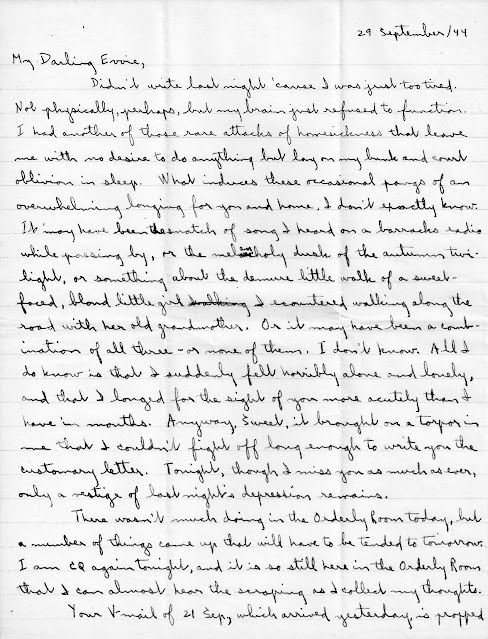 29 September/44
My Darling Evvie,
Didn't write last night 'cause I was just too tired.
Not physically, perhaps, but my brain just refused to function.
I had another of those rare attacks of homesickness that leave
me with no desire to do anything but lay on my bunk and court
oblivion in sleep. What induces these occasional pangs of an
overwhelming longing for you and home, I don't exactly know.
It may have been the snatch of song I heard on a barracks radio
while passing by, or the melancholy dusk of the autumn twi-
light, or something about the demure little walk of a sweet-
faced, blond little girl walking I ecountered walking along the
road with her old grandmother. Or it may have been a comb-
ination of all three - or none of them. I don't know. All I
do know is that I suddenly felt horribly alone and lonely,
and that I longed for the sight of you more acutely than I
have in months. Anyway, Sweet, it brought on a torpor in
me that I couldn't fight off long enough to write you the
customary letter. Tonight, though I miss you as much as ever,
only a vestige of last night's depression remains.
There wasn't much doing in the Orderly Room today, but
a number of things came up that will have to be tended to tomorrow.
I am CQ again tonight, and it is so still here in the Orderly Room
that I can almost hear the scraping as I collect my thoughts.
Your V-mail of 21 Sep, which arrived yesterday is propped